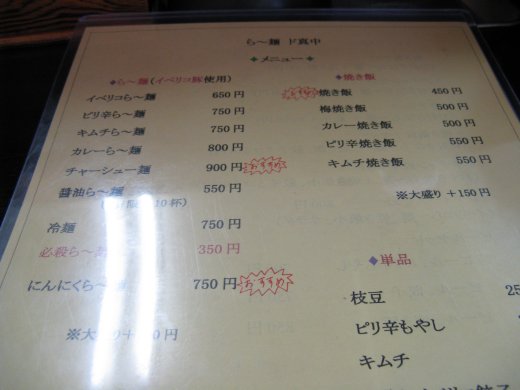 ら～麺 ド真中
◆メニュー◆
◆ら～麺(イベリコ豚使用)
イベリコら～麺 650円
ピリ辛ら～麺 750円
キムチら～麺 750円
カレーら～麺 800円
チャーシュー麺 900円 おすすめ
醤油ら～麺 550円
10杯)
冷麺 750円
必殺ら～ 350円
にんにくら～ 750円 おすすめ
※大盛り＋150円
◆焼き飯
おすすめ 焼き飯 450円
梅焼き飯 500円
カレー焼き飯 500円
ピリ辛焼き飯 550円
キムチ焼き飯 550円
※大盛り＋150円
◆単品
枝豆
ピリ辛もやし
キムチ